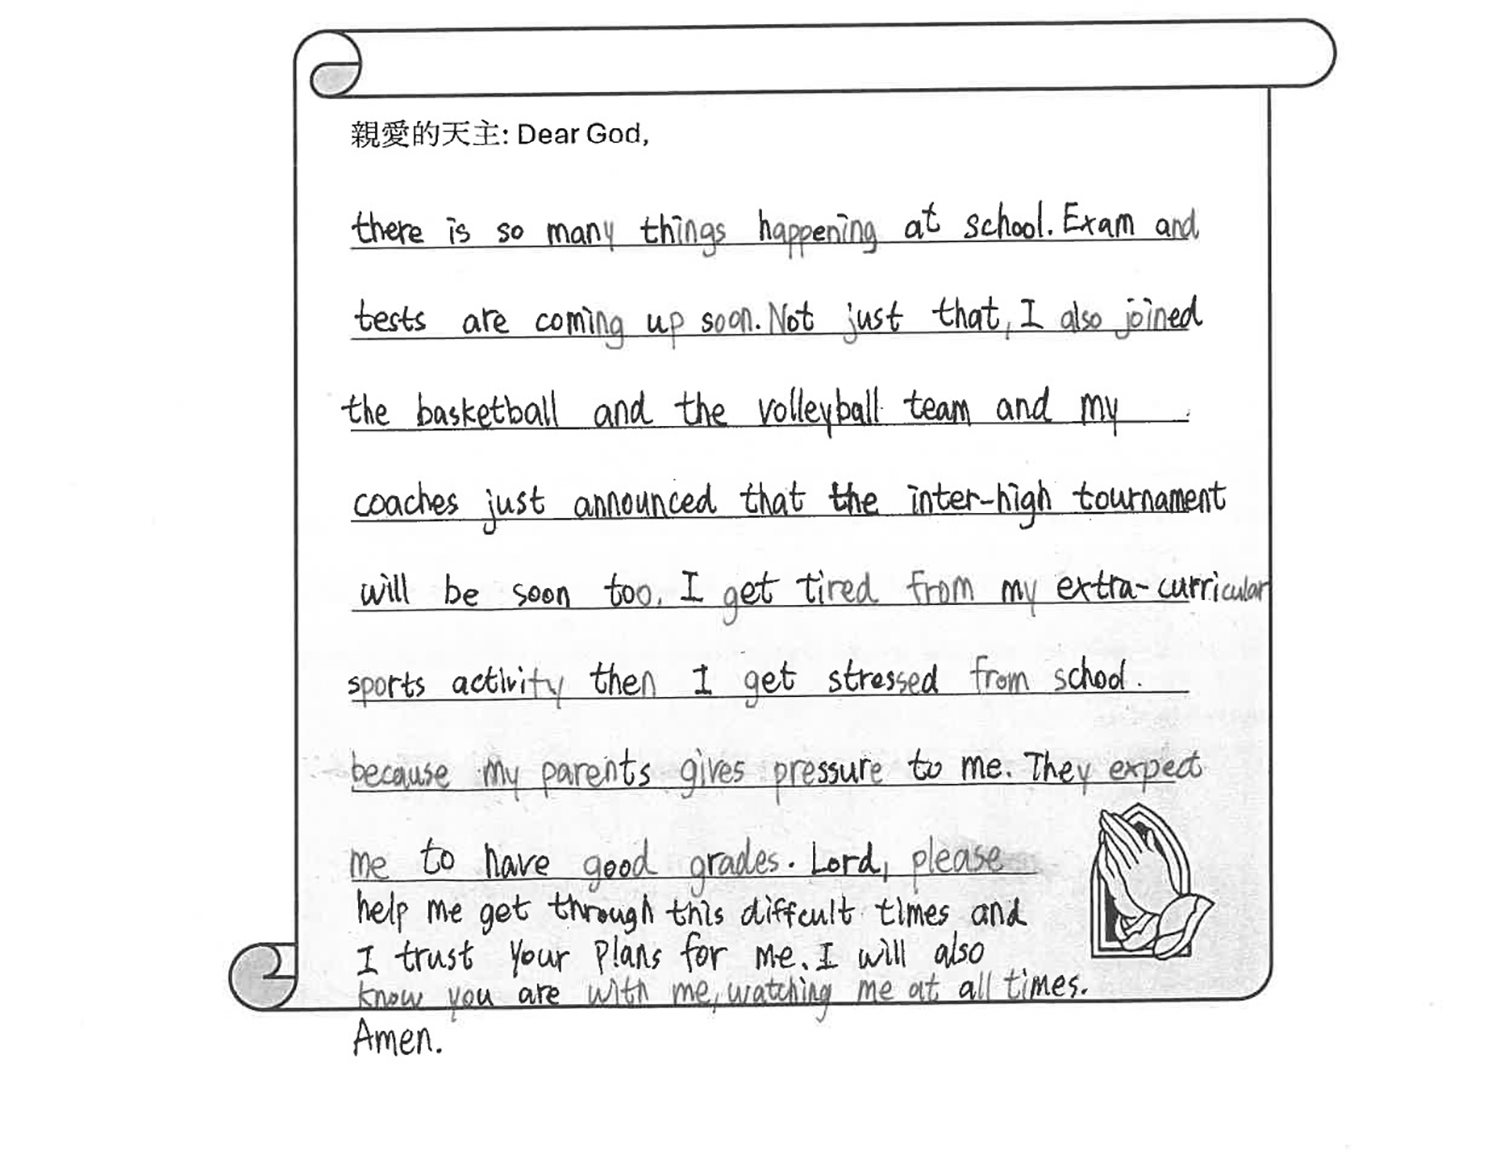 親愛的天主: Dear God,
there is so many things happening at school. Exam and
tests are coming up soon. Not just that, I also joined
the basketball and the volleyball team and my
coaches just announced that the inter-high tournament
will be soon too. I get tired from my extra-curricular
sports activity then I get stressed from school.
because my parents gives pressure to me. They expect
me to have good grades. Lord, please
help me get through this diffcult times and
I trust your plans for me. I will also
know you are with me, watching me at all times.
Amen.